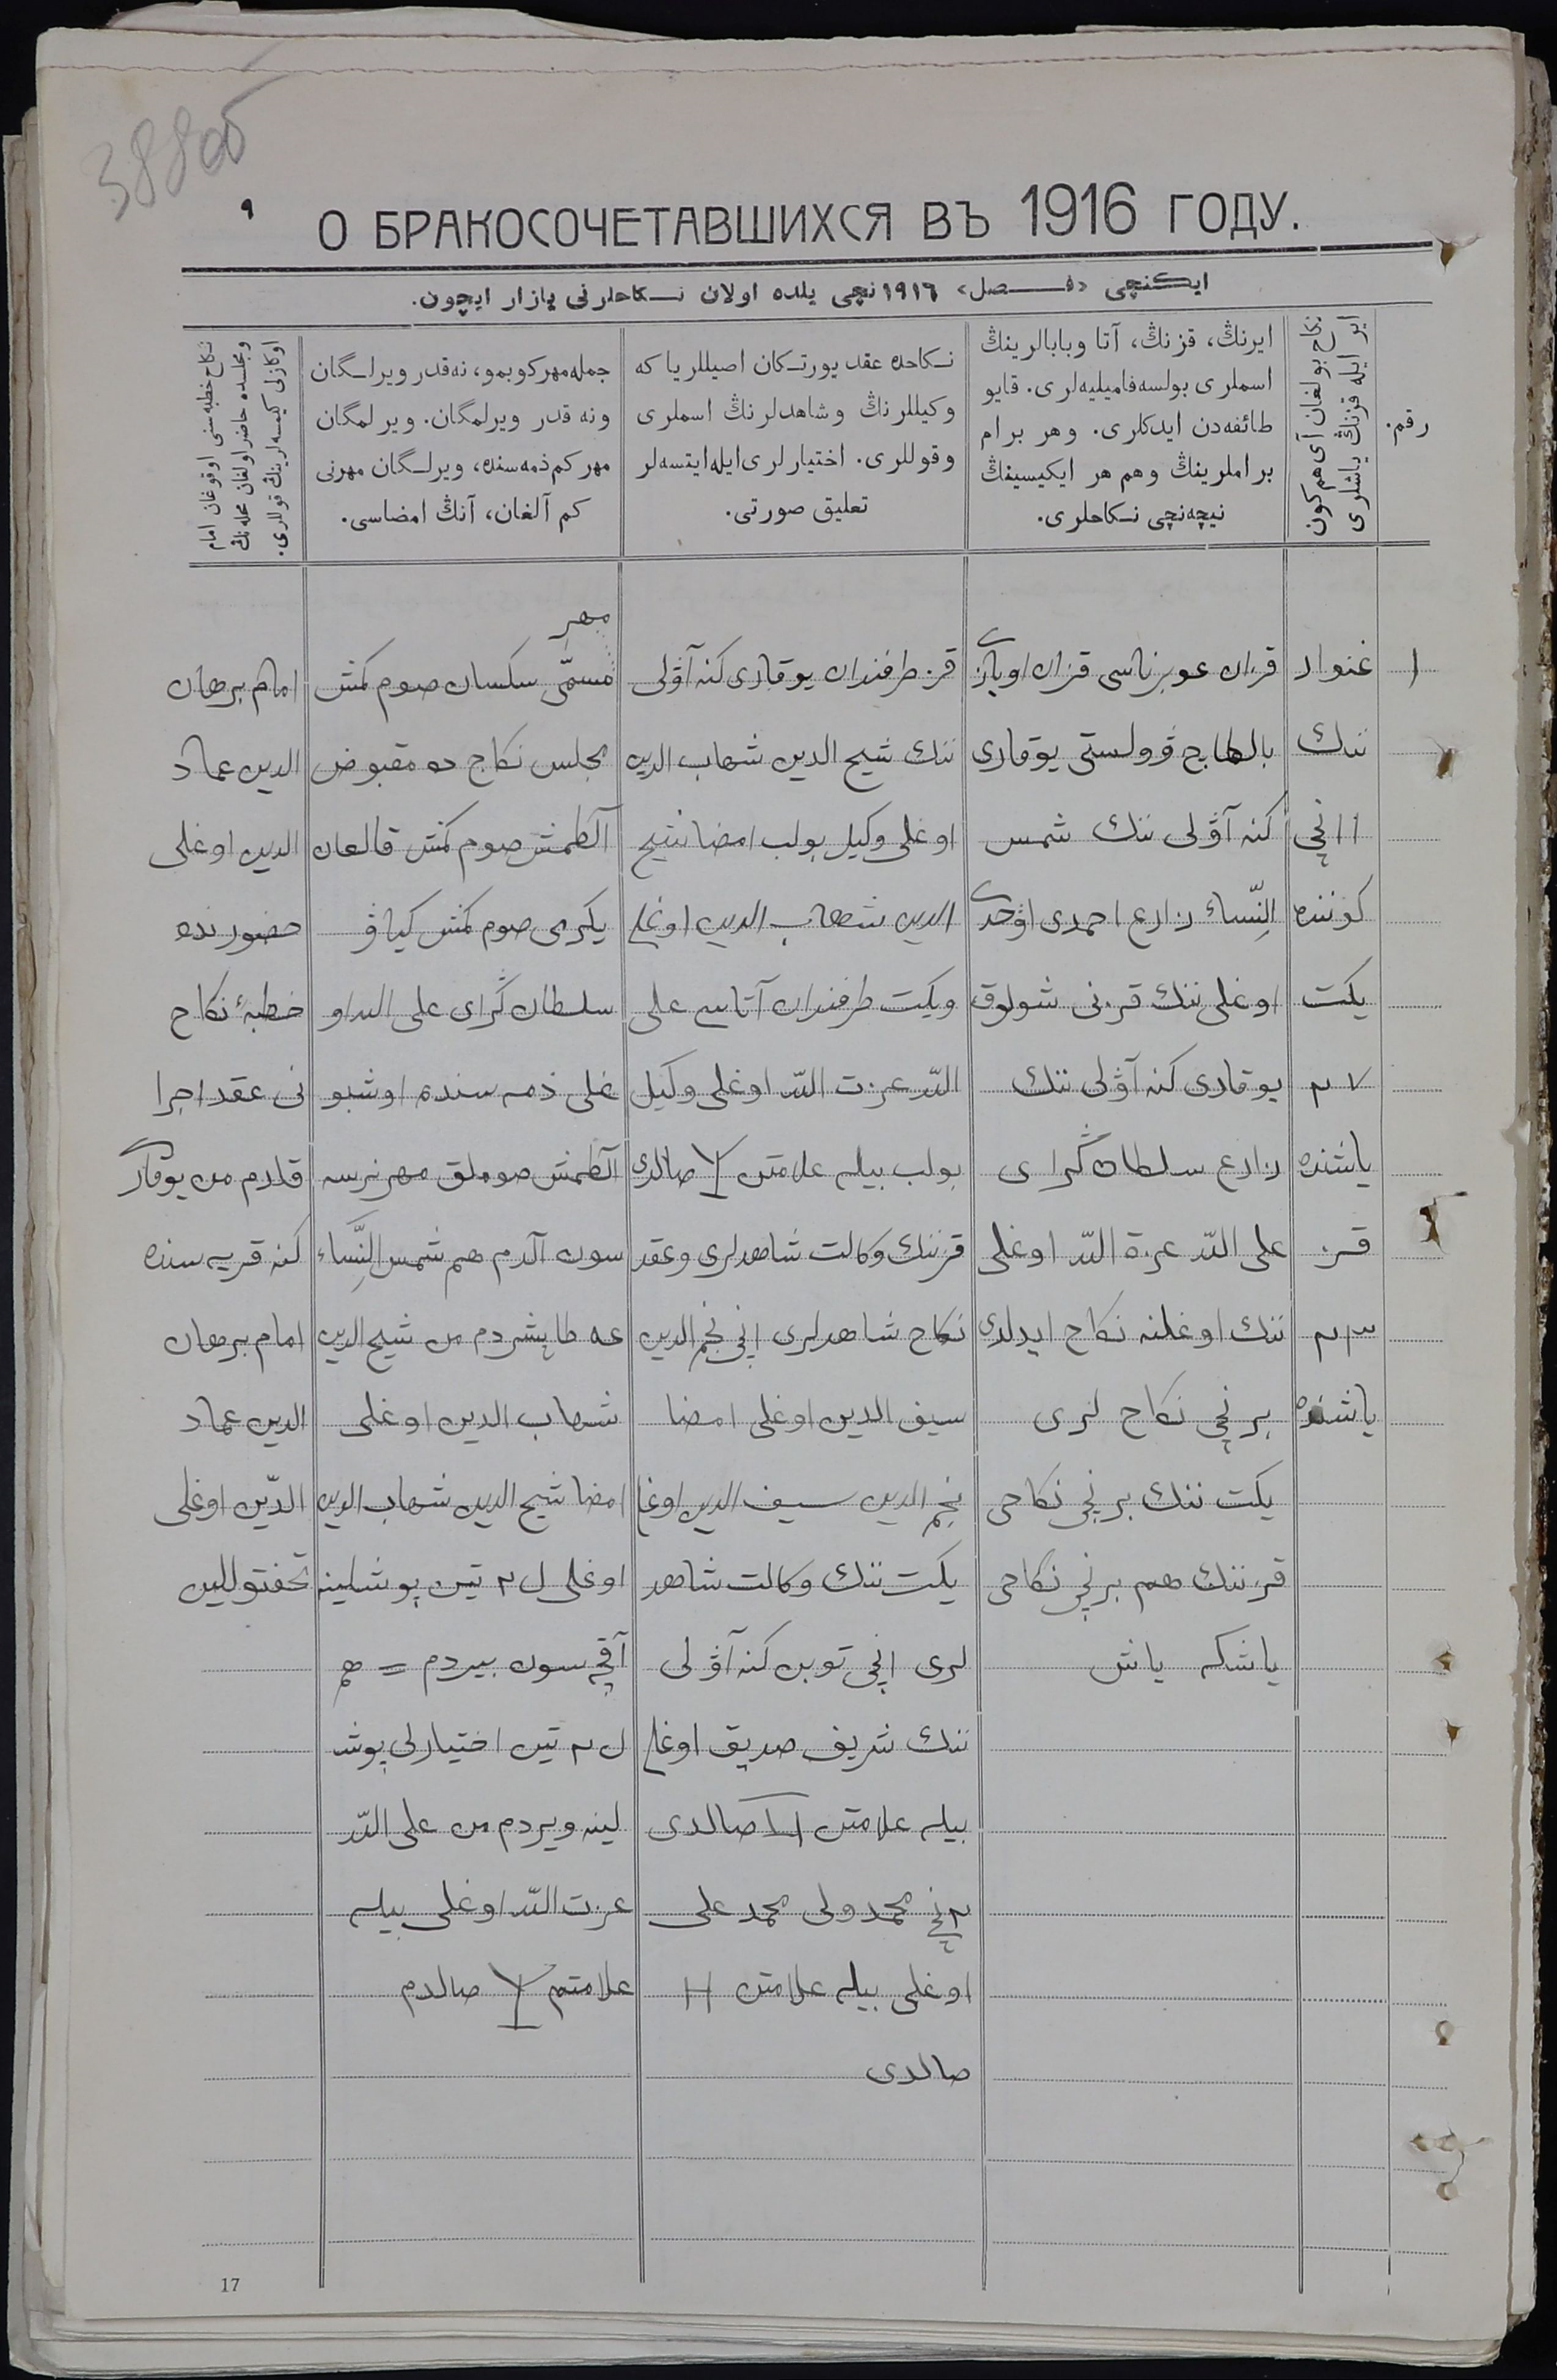 38806
٩
О БРАКОСОЧЕТАВШИХСЯ ВЪ 1916 ГОДУ.
ایكنچی «فصل» ١٩١٦نچی یلده اولان نكاحلرنی یازار ایچون.
رقم.
نكاح بولغان آی هم كون
ایر ایله قزنڭ یاشلری
ایرنڭ، قزنڭ، آتا وبابالرینڭ
اسملری بولسه فامیلیه‌لری. قایو
طائفه‌دن ایدكلری. وهر برام
براملرینڭ وهم هر ایكیسینڭ
نیچه‌نچی نكاحلری.
نكاحده عقد یورتكان اصیللر یا كه
وكیللرنڭ وشاهدلرنڭ اسملری
وقوللری. اختیارلری ایله ایتسه‌لر
تعلیق صورتی.
جمله مهر كوبمو، نه‌قدر ویرلگان
ونه قدر ویرلمگان. ویرلمگان
مهر كم ذمه‌سنده، ویرلگان مهرنی
كم آلغان، آنڭ امضاسی.
نكاح خطبه‌سنی اوقوغان امام
ومجلسده حاضر اولغان محله‌نڭ
اوكازلی كیمسه‌لرینڭ قوللری.
١
غنوار
ننك
١١ نچی
كوننده
یكت
٢٧
یاشنده
قز
٢٣
یاشنده
قزان عوبرناسی قزان اویازی
بالطاچ فولستی یوقاری
كنه آولی ننك شمس
النّساء زارع احمدی اوحدی
اوغلی ننك قزنی شولوق
یوقاری كنه آولی ننك
زارع سلطان گرای
علی اللّه عزة اللّه اوغلی
ننك اوغلنه نكاح ایدلدی
برنچی نكاح لری
یكت ننك برنچی نكاحی
قزننك هم برنچی نكاحی
یاشكه یاش
قز طرفندان یوقاری كنه آولی
ننك شیح الدین شهاب الدین
اوغلی وكیل بولب امضا شیح
الدین شهاب الدین اوغلی
ویكت طرفندان آتاسی علی
اللّه عزت اللّه اوغلی وكیل
بولب بیله علامتن صالدی
قزننك وكالت شاهدلری وعقد
نكاح شاهدلری ١نچی نجم الدین
سیف الدین اوغلی امضا
نجم الدین سیف الدین اوغلی
یكت ننك وكالت شاهد
لری ١نچی توبن كنه آولی
ننك شریف صدیق اوغلی
بیله علامتن صالدی
٢نچی محمدولی محمدعلی
اوغلی بیله علامتن H
صالدی
مهر
مسمّی سكسان صوم كمش
مجلس نكاح ده مقبوض
آلطمش صوم كمش قالغان
یكرمی صوم كمش كیاو
سلطان گرای علی اللّه او
غلی ذمه سنده اوشبو
آلطمش صوملق مهر نرسه
سون آلدم هم شمس النّساء
غه طابشردم من شیح الدین
شهاب الدین اوغلی
امضا شیح الدین شهاب الدین
اوغلی ل٢ تین پوشلینه
آقچه سون بیردم = هم
ل٢ تین اختیارلی پوش
لینه ویردم من علی اللّه
عزت اللّه اوغلی بیله
علامتم صالدم
امام برهان
الدین عماد
الدین اوغلی
حضورنده
خطبهٔ نكاح
نی عقد اجرا
قلدم من یوقاری
كنه قریه سنده
امام برهان
الدین عماد
الدّین اوغلی
تحفتوللین
17